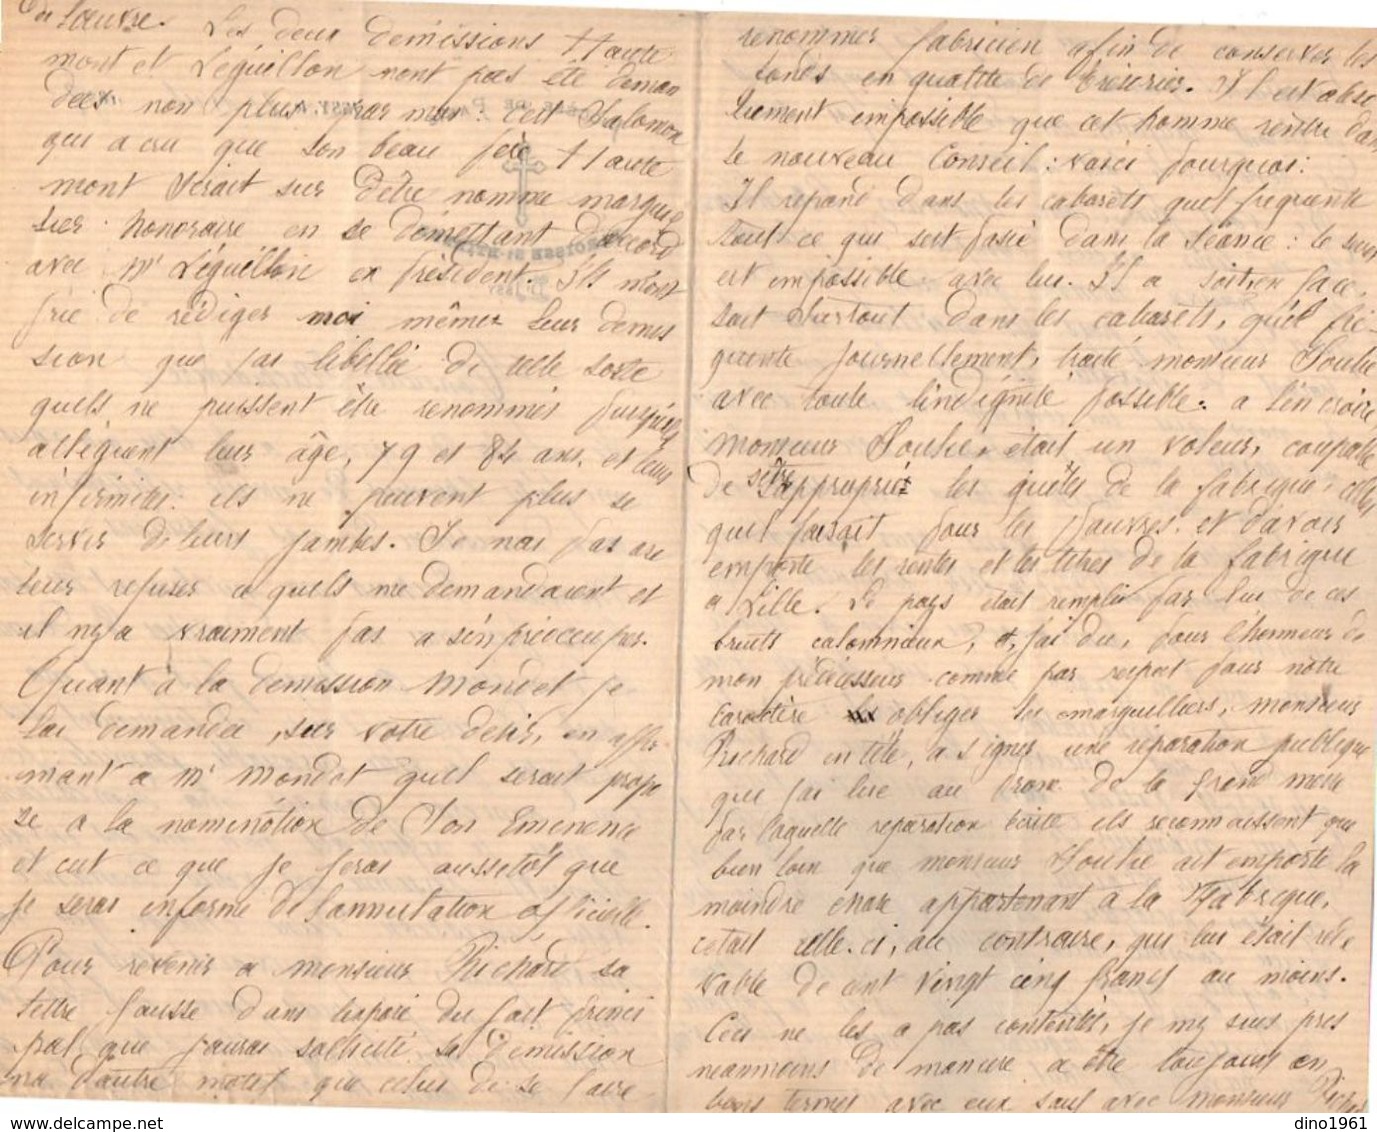 du Louvre. Les deux démissions Haute
mont et Léguillon n'ont pas été deman
dées non plus par moi : c'est Salomon
qui a cru que son beau père Haute
mont serait sur d'être nommé marguil
lier honoraire en se démettant d'accord
avec Mr Léguillon ex président. Ils m'ont
prié de rédiger moi même leur démis
sion que j'ai libellée de telle sorte
quels ne puissent être renommés puisqu'ils
allèguent leur âge, 79 et 84 ans, et leurs
infirmités : ils ne peuvent plus se
servir de leurs jambes. Je n'ai pas cru
leur refuser ce quels me demandaient et
il n'y a vraiment pas a s'en préoccuper.
Quant à la démission Mondet je
l'ai demandée, sur votre désir, en affir
mant a Mr Mondet quel serait propo
sé a la nomination de Son Eminence
et c'est ce que je ferai aussitôt que
je serai informé de l'annulation officielle.
Pour revenir a monsieur Richard sa
lettre fausse dans l'exposé du fait princi
pal que j'aurai sollicité sa démission
n'a d'autre motif que celui de se faire
renommer fabricien afin de conserver les
fonds en qualité de trésorier. Il est abso
lument impossible que cet homme rentre dans
le nouveau Conseil : voici pourquoi :
Il repand dans les cabarets quel frequente
tout ce qui s'est passé dans la séance : le secret
est impossible avec lui. Il a soit en face,
soit surtout dans les cabarets, qu'el fré-
quente journellement, traité monsieur Houlie
avec toute l'indignité possible. a l'en croire,
Monsieur Houlie, était un voleur, coupable
de s'être approprié les quêtes de la fabrique, celles
quel faisait pour les pauvres, et d'avoir
emporté les rentes et les titres de la fabrique
a Lille. Le pays était rempli par lui de ces
bruits calomnieux, et, j'ai du, pour l'honneur de
mon prédécesseur comme par respect pour notre
caractère obliger les marguilliers, monsieur
Richard en tête, a signer une réparation publique
que j'ai lue au prone de la grand messe
par laquelle réparation écrite ils reconnaissent que
bien loin que monsieur Houlie ait emporté la
moindre chose appartenant à la Fabrique,
c'était celle-ci, au contraire, qui lui était rede
vable de cent vingt cinq francs au moins.
Ceci ne les a pas contentés, je m'y suis pris
néanmoins de manière a être toujours en
bons termes avec eux sauf avec monsieur Richard
dino1961